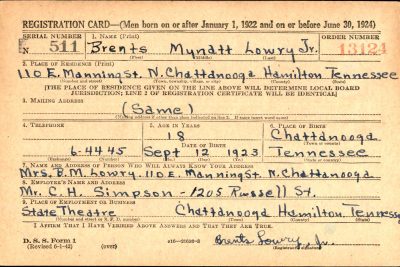 REGISTRATION CARD—(Men born on or after January 1, 1922 and on or before June 30, 1924)
SERIAL NUMBER 1. NAME (Print) ORDER NUMBER
N 511 Brents Mynatt Lowry Jr. 13124
(First) (Middle) (Last)
2. PLACE OF RESIDENCE (Print)
110 E. Manning St. N. Chattanooga Hamilton Tennessee
(Number and street) (Town, township, village, or city) (County) (State)
[THE PLACE OF RESIDENCE GIVEN ON THE LINE ABOVE WILL DETERMINE LOCAL BOARD
JURISDICTION; LINE 2 OF REGISTRATION CERTIFICATE WILL BE IDENTICAL]
3. MAILING ADDRESS
(Same)
[Mailing address if other than place indicated on line 2. If same insert word same]
4. TELEPHONE 5. AGE IN YEARS 6. PLACE OF BIRTH
18 Chattanooga
DATE OF BIRTH (Town or county)
6-4445 Sept 12 1923 Tennessee
(Exchange) (Number) (Mo.) (Day) (Yr.) (State or country)
7. NAME AND ADDRESS OF PERSON WHO WILL ALWAYS KNOW YOUR ADDRESS
Mrs. B. M. Lowry. 110 E. Manning St. N. Chattanooga
8. EMPLOYER'S NAME AND ADDRESS
Mr. C. H. Simpson - 1205 Russell St.
9. PLACE OF EMPLOYMENT OR BUSINESS
State Theatre Chattanooga Hamilton, Tennessee
(Number and street or R. F. D. number) (Town) (County) (State)
I AFFIRM THAT I HAVE VERIFIED ABOVE ANSWERS AND THAT THEY ARE TRUE.
D. S. S. Form 1
(Revised 6-1-42) (over) Brents Lowry, Jr.
(Registrant's signature)